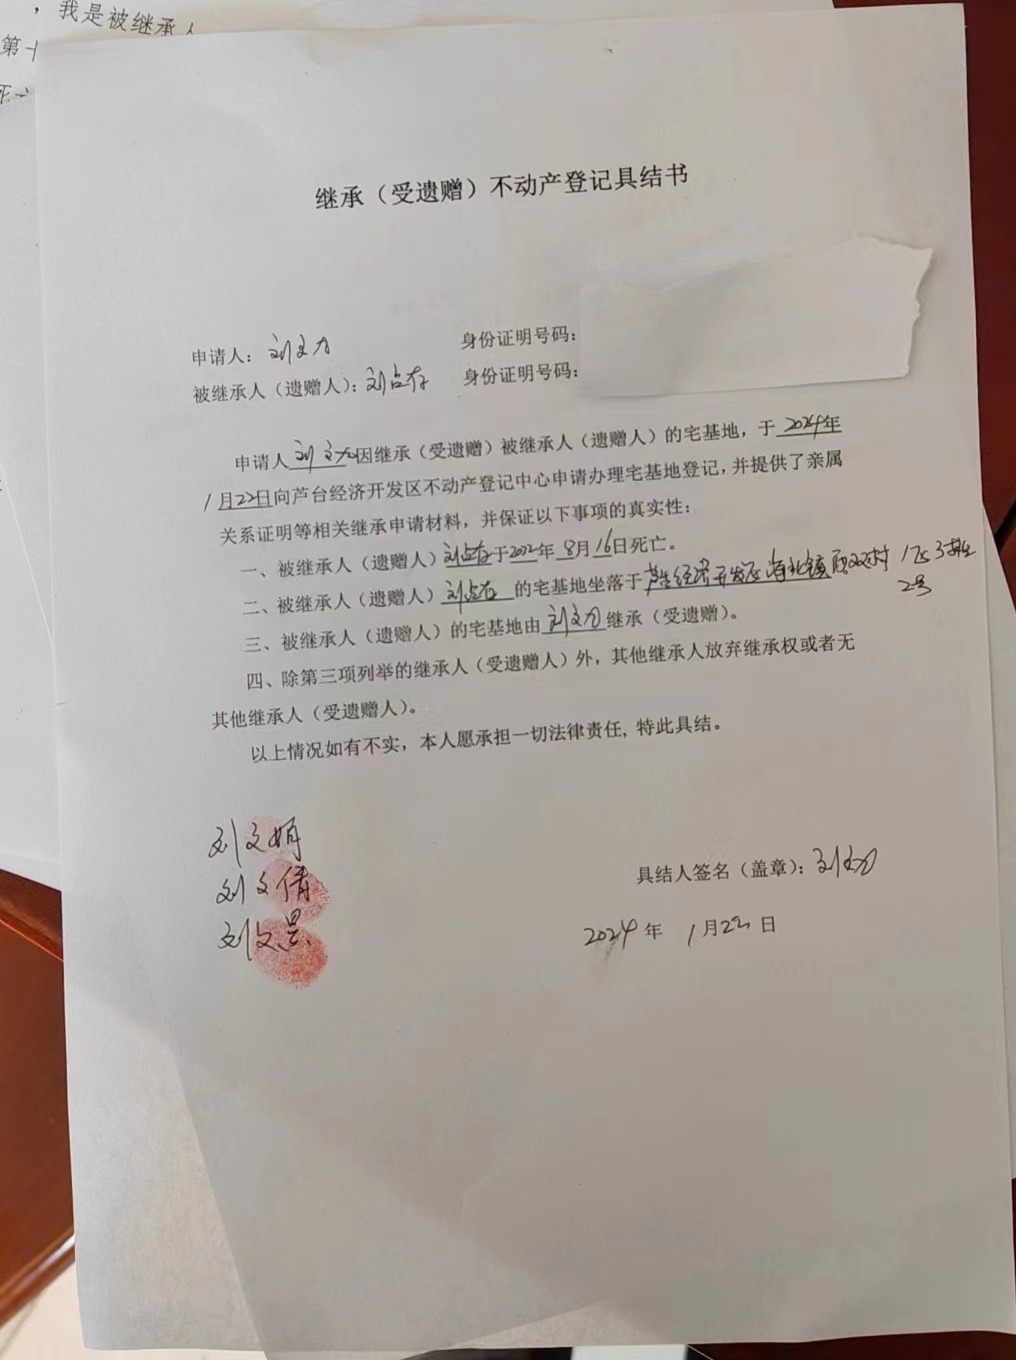 ，我是被继承人
第十
继承（受遗赠）不动产登记具结书
申请人：刘文力 身份证明号码：
被继承人（遗赠人）：刘占存 身份证明号码：
申请人刘文力因继承（受遗赠）被继承人（遗赠人）的宅基地，于2024年
1月22日向芦台经济开发区不动产登记中心申请办理宅基地登记，并提供了亲属
关系证明等相关继承申请材料，并保证以下事项的真实性：
一、被继承人（遗赠人）刘占存于2022年8月16日死亡。
二、被继承人（遗赠人）刘占存的宅基地坐落于芦台经济开发区海北镇 村1区3排
2号
三、被继承人（遗赠人）的宅基地由刘文力继承（受遗赠）。
四、除第三项列举的继承人（受遗赠人）外，其他继承人放弃继承权或者无
其他继承人（受遗赠人）。
以上情况如有不实，本人愿承担一切法律责任，特此具结。
刘文娟
刘文倩
刘文景
具结人签名（盖章）：刘文力
2024年 1月22日